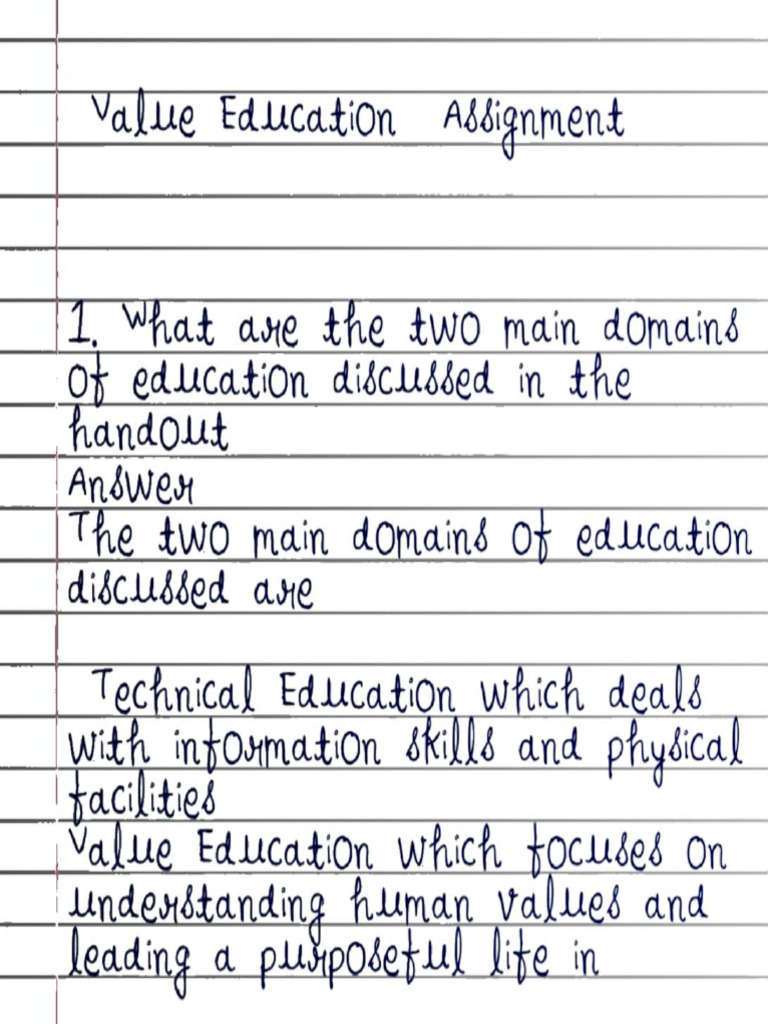 Value Education Assignment
1. What are the two main domains
of education discussed in the
handout
Answer
The two main domains of education
discussed are
Technical Education which deals
with information skills and physical
facilities
Value Education which focuses on
understanding human values and
leading a purposeful life in